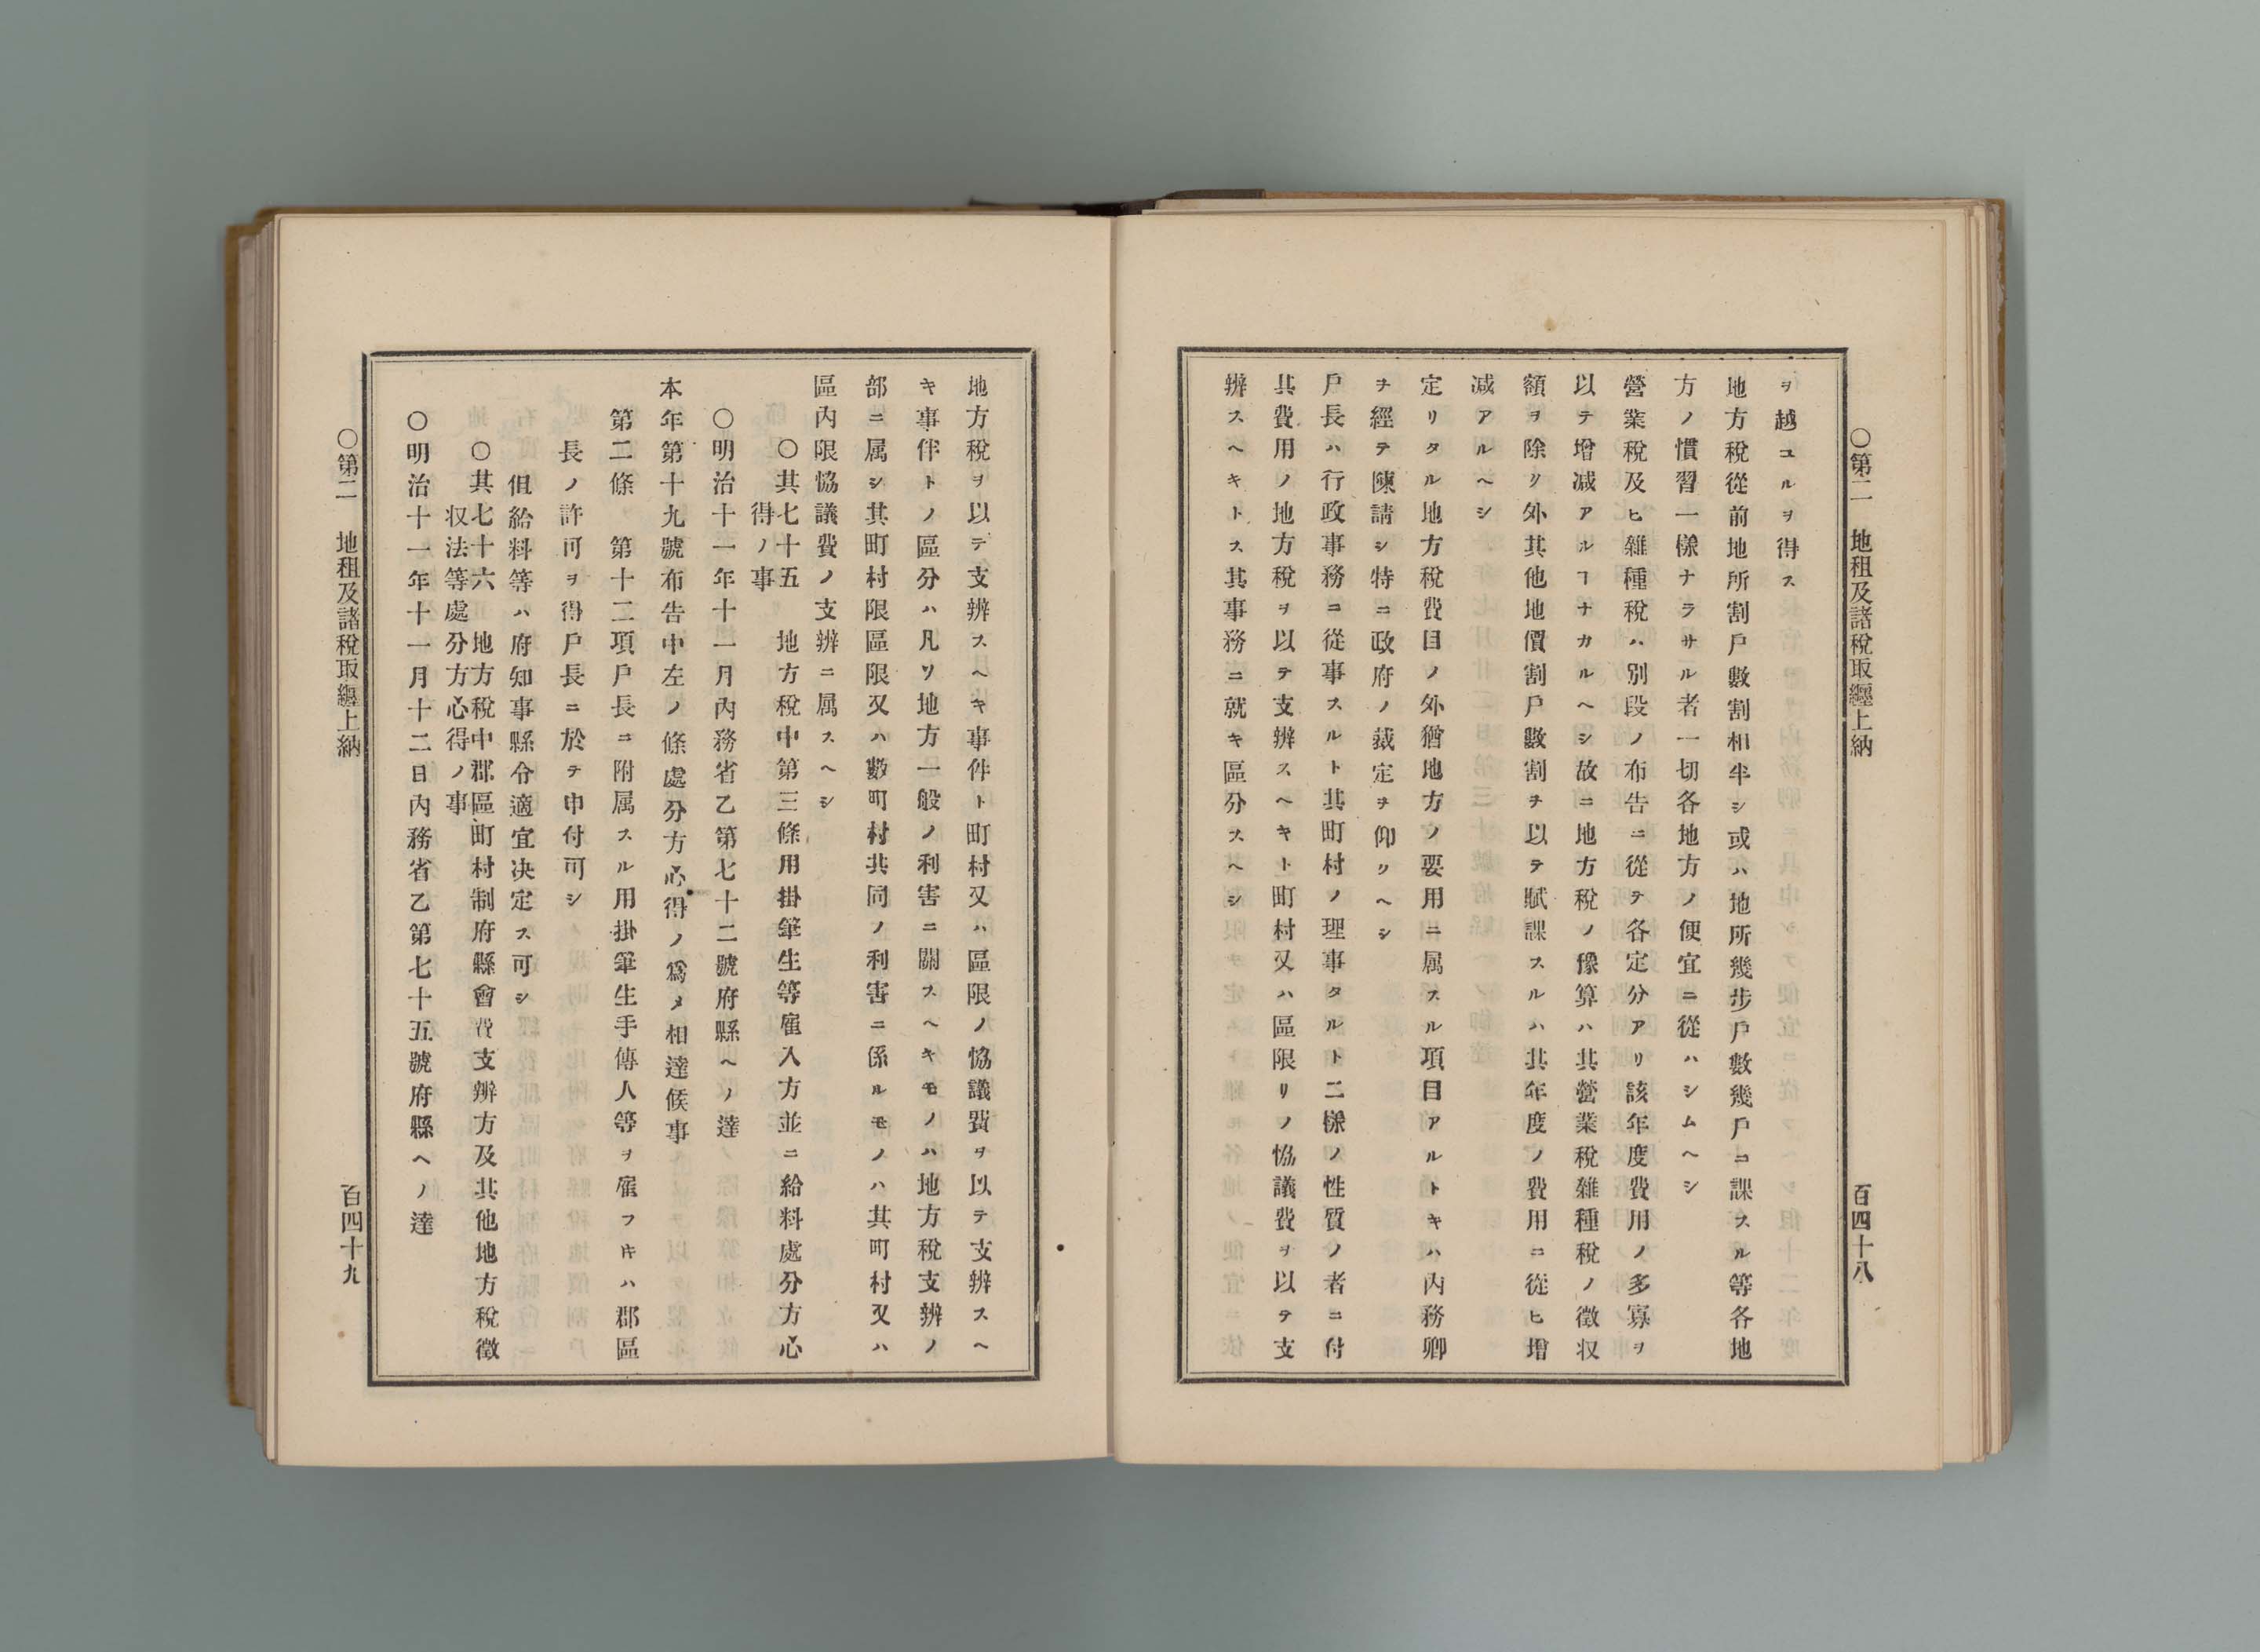 ○第二　地租及諸稅取纒上納　百四十八
ヲ越ユルヲ得ス
地方稅從前地所割戶數割相半シ或ハ地所幾步戶數幾戶ニ課スル等各地
方ノ慣習一樣ナラサル者一切各地方ノ便宜ニ從ハシムヘシ
營業稅及ヒ雜種稅ハ別段ノ布告ニ從テ各定分アリ該年度費用ノ多寡ヲ
以テ增减アルヿナカルヘシ故ニ地方稅ノ豫算ハ其營業稅雜種稅ノ徵収
額ヲ除ク外其他地價割戶數割ヲ以テ賦課スルハ其年度ノ費用ニ從ヒ增
减アルヘシ
定リタル地方稅費目ノ外猶地方ノ要用ニ属スル項目アルトキハ內務卿
ヲ經テ陳請シ特ニ政府ノ裁定ヲ仰クヘシ
戶長ハ行政事務ニ從事スルト其町村ノ理事タルト二樣ノ性質ノ者ニ付
其費用ノ地方稅ヲ以テ支辨スヘキト町村又ハ區限リノ恊議費ヲ以テ支
辨スヘキトス其事務ニ就キ區分スヘシ
地方稅ヲ以テ支辨スヘキ事件ト町村又ハ區限ノ恊議費ヲ以テ支辨スヘ
キ事件トノ區分ハ凡ソ地方一般ノ利害ニ關スヘキモノハ地方稅支辨ノ
部ニ属シ其町村限區限又ハ數町村共同ノ利害ニ係ルモノハ其町村又ハ
區內限恊議費ノ支辨ニ属スヘシ
○其七十五　地方稅中第三條用掛筆生等雇入方並ニ給料處分方心
得ノ事
○明治十一年十一月內務省乙第七十二號府縣ヘノ達
本年第十九號布告中左ノ條處分方心得ノ爲メ相達候事
第二條　第十二項戶長ニ附属スル用掛筆生手傳人等ヲ雇フキハ郡區
長ノ許可ヲ得戶長ニ於テ申付可シ
但給料等ハ府知事縣令適宜决定ス可シ
○其七十六　地方稅中郡區町村制府縣會費支辨方及其他地方稅徵
収法等處分方心得ノ事
○明治十一年十一月十二日內務省乙第七十五號府縣ヘノ達
○第二　地租及諸稅取纒上納　百四十九